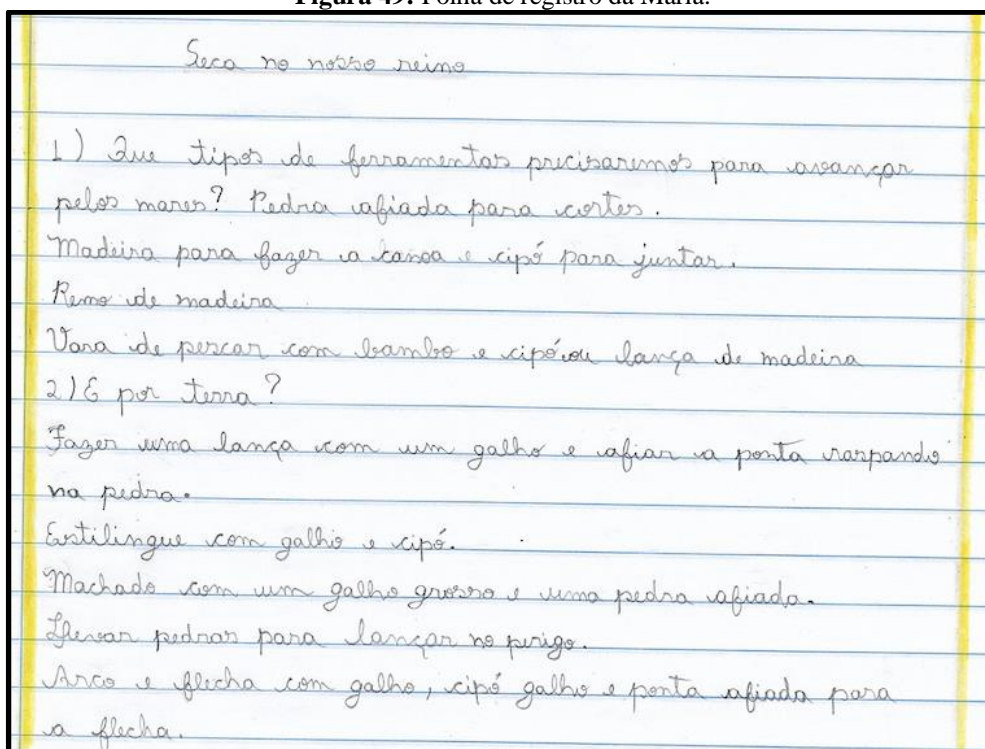 Figura 49: Folha de registro da Maria.
Seca no nosso reino
1) Que tipos de ferramentas precisaremos para avançar
pelos mares? Pedra afiada para cortes.
Madeira para fazer a canoa e cipó para juntar.
Remo de madeira
Vara de pescar com bambo e cipó ou lança de madeira
2) E por terra?
Fazer uma lança com um galho e afiar a ponta raspando
na pedra.
Estilingue com galho e cipó.
Machado com um galho grosso e uma pedra afiada.
Llevar pedras para lançar no perigo.
Arco e flecha com galho, cipó galho e ponta afiada para
a flecha.